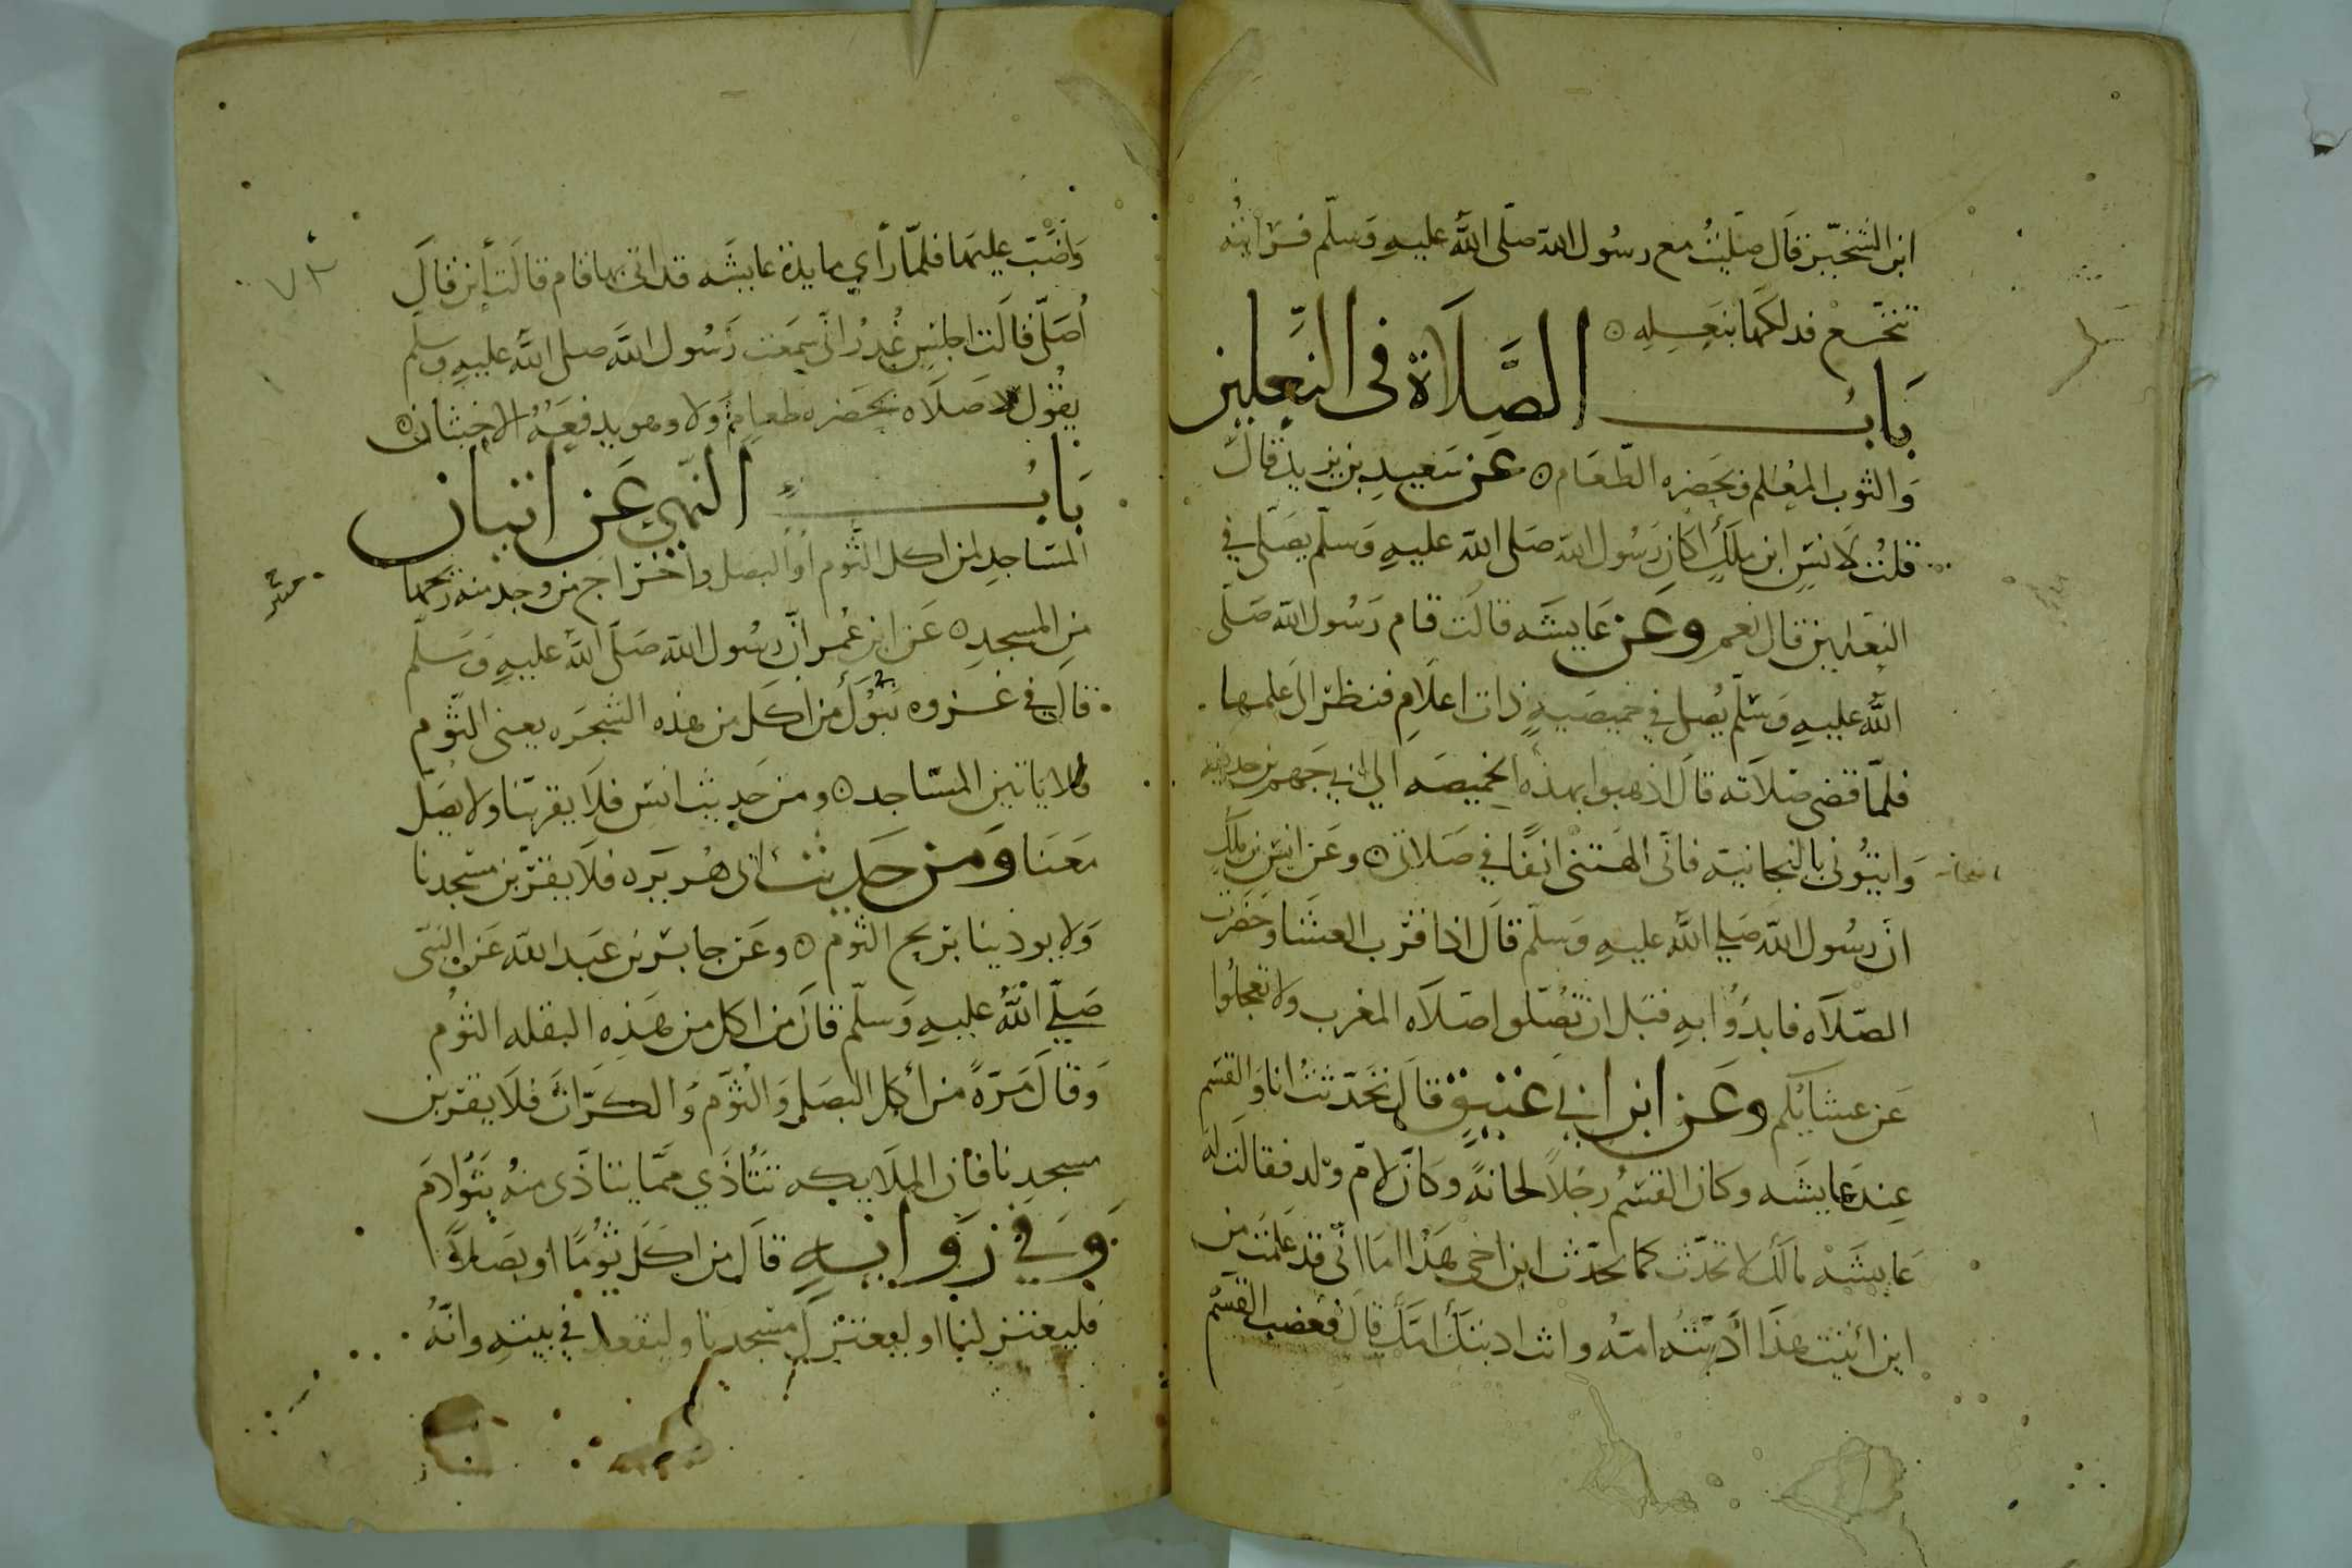 ابن الشخّير قال صلّيتُ مع رسُول الله صلّى الله عليهِ وَسلّم فرَايتُه
تنخّع فدلكها بنعلِه ه
بَابُ الصَّلَاة في النَّعلين
وَالثوب المُعْلم وبحَضره الطّعَام ه عن سَعيدِ بن يزيد قال
قلتُ لانسِ ابن ملكٍ اكان رَسُول الله صَلى الله عليهِ وَسلّم يصَلّي في
النعلين قال نعم وعَن عَايشَه قالَت قام رَسُول الله صَلّى
الله عليهِ وَسَلّم يُصلي في خميصَهٍ ذات اعلَامٍ فنظر الى عَلمها
فلمّا قضى صَلاته قال اذهبوا بهذه الخميصَه الي ابي جَهم بن حذيفه
وَايتُونى بالنجانية فانّى الهتنى انفًا في صَلاتى ه وعَن انسِ بن ملكٍ
انّ رسُول الله صَلي الله عليهِ وَسلّم قال اذا قرّب العشَا وحَضرت
الصّلاَه فابدَؤُا بهِ قبَل ان تُصَلوا صَلَاه المغرب ولا تعجلُوا
عَن عشَايكم وعَن ابن ابي عَتيق قال تحَدّثتُ انا وَالقسم
عِند عايشَه وكان القسمُ رجُلاً لحانةً وكانَ لامّ ولد فقالَت له
عَايشَه مَالكَ لا تحدّث كما يحدّث ابن اخى هَذا امَا انّى قد عَلمتَ من
اين أتيت هَذَا أدّبَتهُ امّهُ وانت ادبتكَ امّكَ قال فغضب القسم
وَاضّبّ عليهَا فلمّا رَأي مايدة عايشَه قد اتى بها قام قالَت أين قالَ
اُصَلّى قالَت اجلِس غُدَرُ انّى سَمعت رَسُول الله صلى الله عليهِ وسلّم
يقُول لا صَلَاه بحَضره طعَامٍ ولا وهو يدفعَهُ الاخبثان ه
بَابُ النّهي عَن اتيان
المسَاجدِ لمن اكل الثُّوم اوَالبصل واخراج من وجد منه ريحها
من المسجدِ ه عَن ابن عُمر انّ رسُول الله صَلّى الله عليهِ وَسَلّم
قال في غزوه تبُوكَ من اكَل من هَذه الشجَره يعنى الثّوم
فلا ياتين المسَاجد ه ومن حَديث انس فلَا يقربَنا ولا يصَلّ
معَنا وَمن حَديث ابى هُريرَه فلَا يقرَبن مَسجدنا
وَلا يوذينا بريح الثوم ه وعَن جابرٍ بن عَبد الله عَن النبىّ
صَلّي اللهُ عليهِ وَسلّم قالَ من اكل من هَذِه البقله الثوُم
وَقالَ مَرّةً من أكل البصَل وَالثوّم وَالكرّاث فلَا يقرَبن
مسجدِنا فان الملَايكه تتَأذَي ممّا يتاذّى منهُ بَنُوا ادَم
وَفي رَوايهٍ قالَ من اكَل ثومًا او بصَلاً
فليعتزلنا او ليعتزل مسجدنا وليقعد في بيتهِ وانّهُ